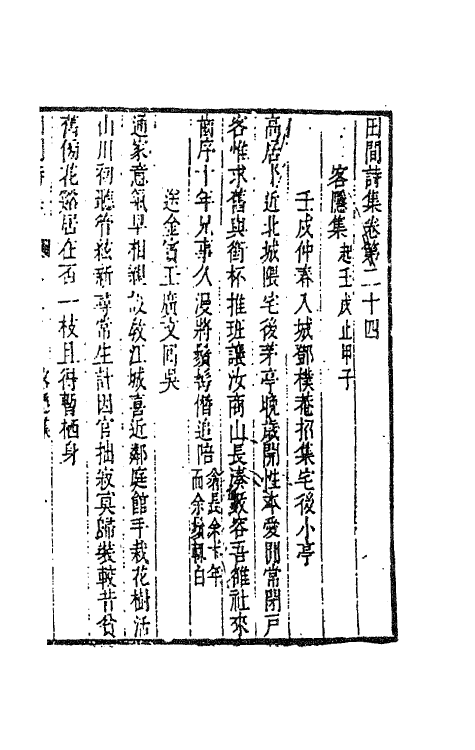 田間詩集卷第二十四
客隱集起壬戌止甲子
壬戌仲春入城鄧樸菴招集宅後小亭
高居近北城隈宅後茅亭晚歲開性本愛閒常閉戶
客惟求舊與銜杯推班讓汝商山長湊數容吾雒社來
齒序十年兄事久漫將鬚鬢僭追陪翁長余十年而余鬚較白
送金賓王廣文回吳
通家意氣早相親設教江城喜近鄰庭館手栽花樹活
山川初聽管絃新尋常生計因官拙寂寞歸裝較昔貧
舊傍花谿居在否一枝且得暫栖身